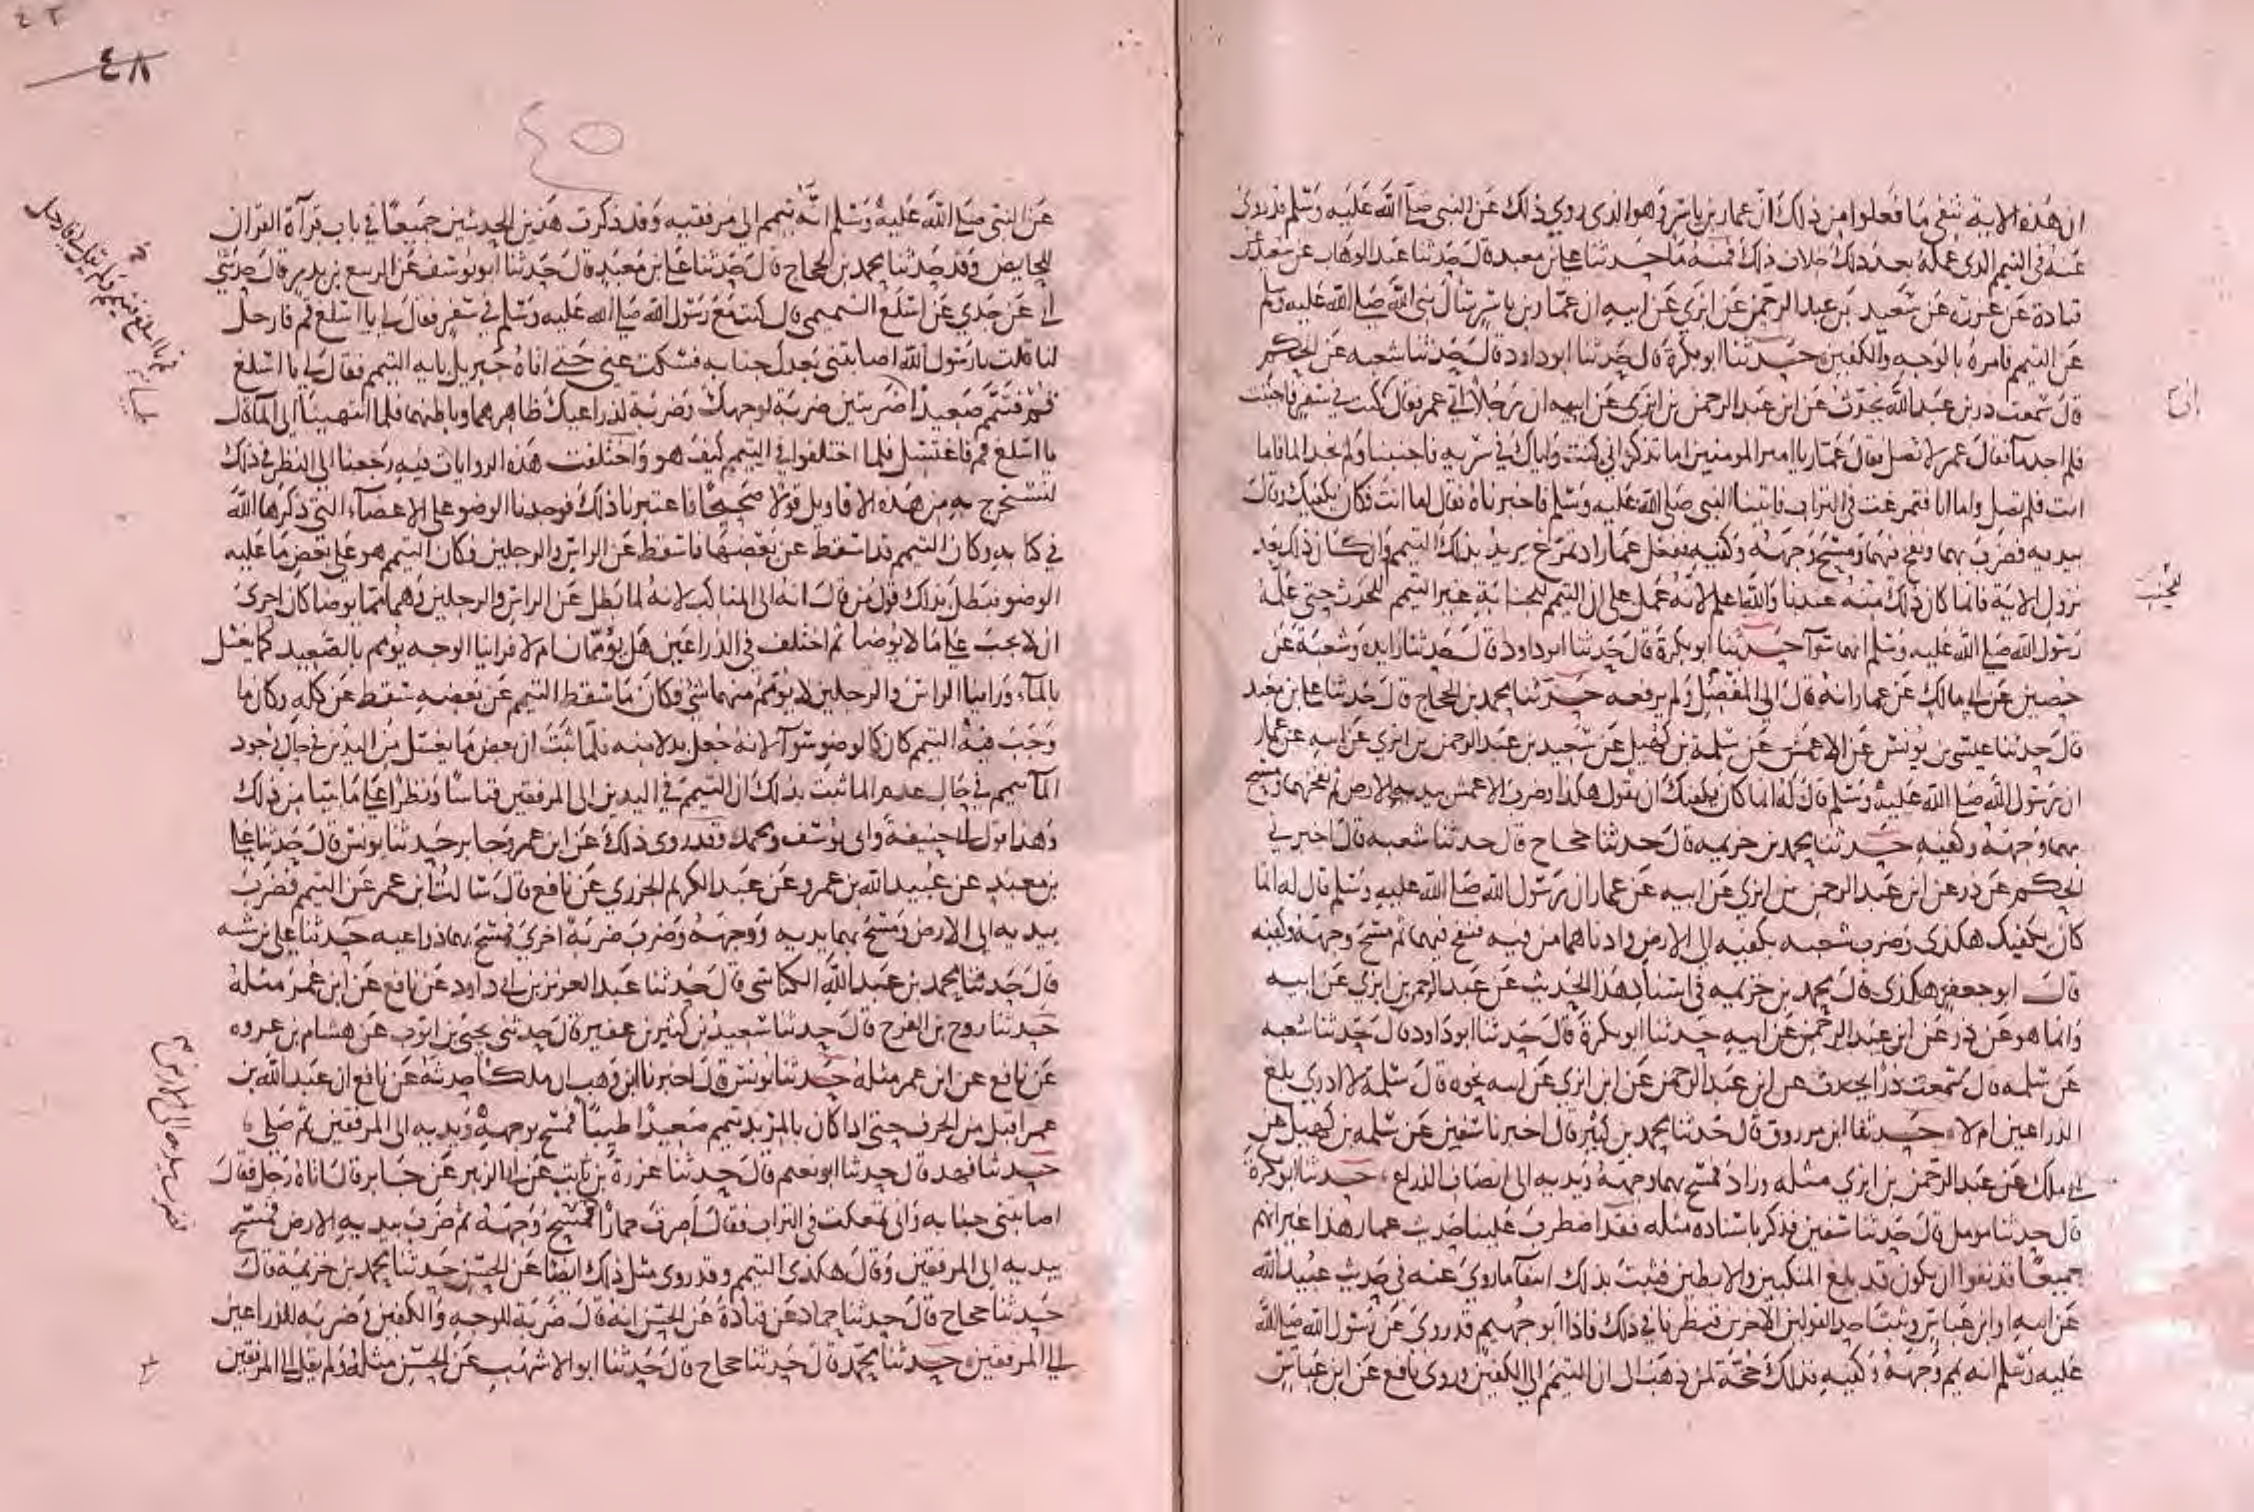 ان هذه الاية تنفى ما فعلوا من ذلك ان عمار بن ياسر وهو الذى روي ذلك عن النبي صلى الله عليه وسلم قد روى
عنه فى التيمم الذى عمله بعد ذلك خلاف ذلك فمنه ما حدثنا علي بن معبد قال حدثنا عبد الوهاب عن سعيد عن
قتادة عن عزرة عن سعيد بن عبد الرحمن عن ابزي عن ابيه ان عمار بن ياسر سأل نبي الله صلى الله عليه وسلم
عن التيمم فامره بالوجه والكفين حدثنا ابو بكرة قال حدثنا ابو داود قال حدثنا شعبه عن الحكم
قال سمعت ذر بن عبد الله يحدث عن ابن عبد الرحمن بن ابزى عن ابيه ان رجلا اتى عمر فقال كنت في سفر فاجنبت
فلم اجد مآ فقال عمر لا تصل فقال عمار يا امير المومنين اما تذكر اني كنت واياك في سريه فاجنبنا ولم نجد الما فاما
انت فلم تصل واما انا فتمرغت فى التراب فاتينا النبي صلى الله عليه وسلم فاخبرناه فقال اما انت فكان يكفيك وقال
بيديه فضرب بهما ونفخ فيهما ومسح وجهه وكفيه ففعل عمار اذ تمرغ يريد بذلك التيمم وان كان ذلك بعد
نزول الاية فانما كان ذلك منه عندنا والله اعلم لانه عمل على ان التيمم للجنابة غير التيمم للحدث حتى علمه
رسول الله صلى الله عليه وسلم انهما سوآ حدثنا ابو بكرة قال حدثنا ابو داود قال حدثنا زايده وشعبة عن
حصين عن ابي مالك عن عمار انه قال الى المفصل ولم يرفعه حدثنا محمد بن الحجاج قال حدثنا علي بن معبد
قال حدثنا عيسى بن يونس عن الاعمش عن سلمة بن كهيل عن سعيد بن عبد الرحمن بن ابزي عن ابيه عن عمار
ان رسول الله صلى الله عليه وسلم قال له انما كان يكفيك ان تقول هكذا وضرب الاعمش بيديه الارض ثم نفخهما ومسح
بهما وجهه وكفيه حدثنا محمد بن خزيمه قال حدثنا حجاج قال حدثنا شعبه قال اخبرني
الحكم عن ذر عن ابن عبد الرحمن بن ابزي عن ابيه عن عمار ان رسول الله صلى الله عليه وسلم قال له انما
كان يكفيك هكذى وضرب شعبه بكفيه الى الارض وادناهما من فيه فنفخ فيهما ثم مسح وجهه وكفيه
قال ابو جعفر هكذى قال محمد بن خزيمه فى اسناد هذا الحديث عن عبد الرحمن بن ابزي عن ابيه
وانما هو عن ذر عن ابن عبد الرحمن عن ابيه حدثنا ابو بكرة قال حدثنا ابو داود قال حدثنا شعبه
عن سلمه قال سمعت ذرا يحدث عن ابن عبد الرحمن عن ابن ابزي عن ابيه نحوه قال سلمة لا ادرى بلغ
الذراعين ام لا حدثنا ابن مرزوق قال حدثنا محمد بن كثير قال اخبرنا سفين عن سلمه بن كهيل عن
ابي ملك عن عبد الرحمن بن ابزي مثله وزاد فمسح بهما وجهه ويديه الى انصاف الذراع حدثنا ابو بكرة
قال حدثنا مومل قال حدثنا سفين فذكر باسناده مثله فقد اضطرب علينا حديث عمار هذا غير انهم
جميعا قد نفوا ان يكون قد بلغ المنكبين والابطين فثبت بذلك انتفآ ما روي عنه في حديث عبيد الله
عن ابيه او ابن عباس وثبت احد القولين الاخرين فنظرنا في ذلك فاذا ابو جهيم قد روى عن رسول الله صلى الله
عليه وسلم انه يمم وجهه وكفيه فذلك حجة لمن ذهب الى ان التيمم الى الكفين وروى نافع عن ابن عباس
٤٨
٤٥
عن النبي صلى الله عليه وسلم انه تيمم الى مرفقيه وقد ذكرت هذين الحديثين جميعا في باب قرآة القران
للحايض وقد حدثنا محمد بن الحجاج قال حدثنا علي بن معبد قال حدثنا ابو يوسف عن الربيع بن بدر قال حدثني
ابي عن جدي عن اسلع التميمي قال كنت مع رسول الله صلى الله عليه وسلم في سفر فقال لي يا اسلع قم فارحل
لنا قلت يا رسول الله اصابتني بعدك جنابه فسكت عني حتى اتاه جبريل بايه التيمم فقال لي يا اسلع
قم فتيمم صعيدا ضربتين ضربة لوجهك وضربة لذراعيك ظاهرهما وباطنهما فلما انتهينا الى المآ قال
يا اسلع قم فاغتسل فلما اختلفوا في التيمم كيف هو واختلفت هذه الروايات فيه رجعنا الى النظر في ذلك
لنستخرج به من هذه الاقاويل قولا صحيحا فاعتبرنا ذلك فوجدنا الوضو على الاعضآء التي ذكرها الله
في كتابه وكان التيمم قد اسقط عن بعضها فاسقط عن الراس والرجلين وكان التيمم هو على بعض ما عليه
الوضو فبطل بذلك قول من قال انه الى المناكب لانه لما بطل عن الراس والرجلين وهما مما يوضا كان احرى
ان لا يجب على ما لا يوضا ثم اختلف في الذراعين هل يؤممان ام لا فراينا الوجه يومم بالصعيد كما يغسل
بالمآء وراينا الراس والرجلين لا يومم منهما شئ فكان ما سقط التيمم عن بعضه سقط عن كله وكان ما
وجب فيه التيمم كان كالوضو سوآ لانه جعل بدلا منه فلما ثبت ان بعض ما يغسل من اليدين في حال وجود
المآ ييمم في حال عدم الما ثبت بذلك ان التيمم في اليدين الى المرفقين قياسا ونظرا على ما بينا من ذلك
وهذا قول ابي حنيفة وابي يوسف ومحمد وقد روى ذلك عن ابن عمر وجابر حدثنا يونس قال حدثنا علي
بن معبد عن عبيد الله بن عمرو عن عبد الكريم الجزري عن نافع قال سالت ابن عمر عن التيمم فضرب
بيديه الى الارض ومسح بهما يديه ووجهه وضرب ضربة اخرى فمسح بهما ذراعيه حدثنا علي بن شيبه
قال حدثنا محمد بن عبد الله الكناسى قال حدثنا عبد العزيز بن ابي داود عن نافع عن ابن عمر مثله
حدثنا روح بن الفرج قال حدثنا سعيد بن كثير بن عفير قال حدثنى يحيى بن ايوب عن هشام بن عروه
عن نافع عن ابن عمر مثله حدثنا يونس قال اخبرنا ابن وهب ان ملكا حدثه عن نافع ان عبد الله بن
عمر اقبل من الجرف حتى اذا كان بالمربد تيمم صعيدا طيبا فمسح بوجهه ويديه الى المرفقين ثم صلى
حدثنا فهد قال حدثنا ابو نعيم قال حدثنا عزرة بن ثابت عن ابي الزبير عن جابر قال اتاه رجل فقال
اصابتنى جنابه وانى تمعكت فى التراب فقال اصرت حمارا فمسح وجهه ثم ضرب بيديه الارض فمسح
بيديه الى المرفقين وقال هكذى التيمم وقد روى مثل ذلك ايضا عن الحسن حدثنا محمد بن خزيمه قال
حدثنا حجاج قال حدثنا حماد عن قتادة عن الحسن انه قال ضربة للوجه والكفين وضربه للذراعين
الى المرفقين حدثنا محمد قال حدثنا حجاج قال حدثنا ابو الاشهب عن الحسن مثله ولم يقل الى المرفقين